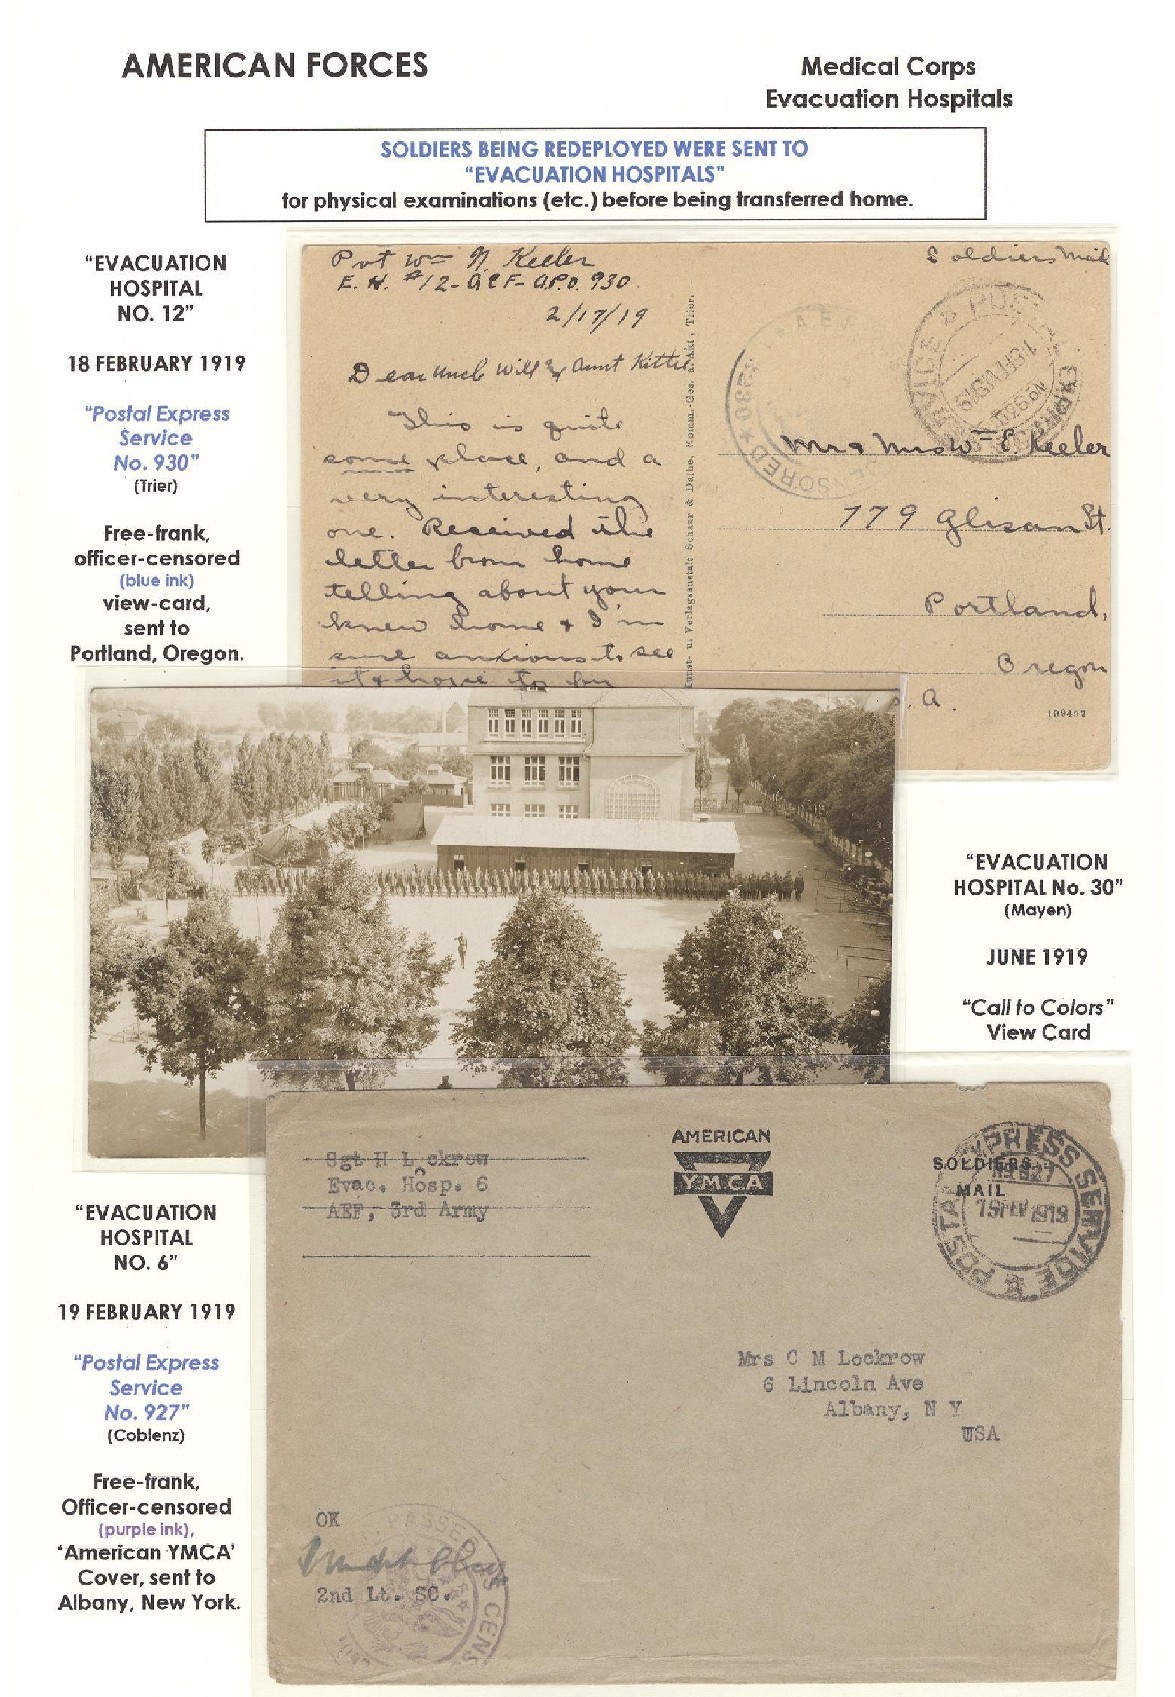 AMERICAN FORCES
Medical Corps
Evacuation Hospitals
SOLDIERS BEING REDEPLOYED WERE SENT TO
"EVACUATION HOSPITALS"
for physical examinations (etc.) before being transferred home.
"EVACUATION
HOSPITAL
NO. 12"
18 FEBRUARY 1919
"Postal Express
Service
No. 930"
(Trier)
Free-frank,
officer-censored
(blue ink)
view-card,
sent to
Portland, Oregon.
Pvt Wm N. Keeler
E. H. #12 - A.E.F - A.P.O. 930.
2/17/19
Dear Uncle Will & Aunt Kittie
This is quite
some place, and a
very interesting
one. Received the
letter from home
telling about your
knew home & I'm
sure anxious to see
it & hope to be
Kunst- u. Verlagsanstalt Schaar & Dathe, Komm.-Ges. a. Akt., Trier.
Soldiers Mail
Mr & Mrs Wm E. Keeler
779 Glisan St.
Portland,
Oregon
S. A.
109407
"EVACUATION
HOSPITAL No. 30"
(Mayen)
JUNE 1919
"Call to Colors"
View Card
"EVACUATION
HOSPITAL
NO. 6"
19 FEBRUARY 1919
"Postal Express
Service
No. 927"
(Coblenz)
Free-frank,
Officer-censored
(purple ink),
'American YMCA'
Cover, sent to
Albany, New York.
Sgt H Lockrow
Evac. Hosp. 6
AEF, 3rd Army
AMERICAN
Y.M.C.A
SOLDIERS
MAIL
POSTAL EXPRESS SERVICE
No 927
19 FEB 1919
Mrs C M Lockrow
6 Lincoln Ave
Albany, N Y
USA
OK
2nd Lt. SC.
PASSED
CENS